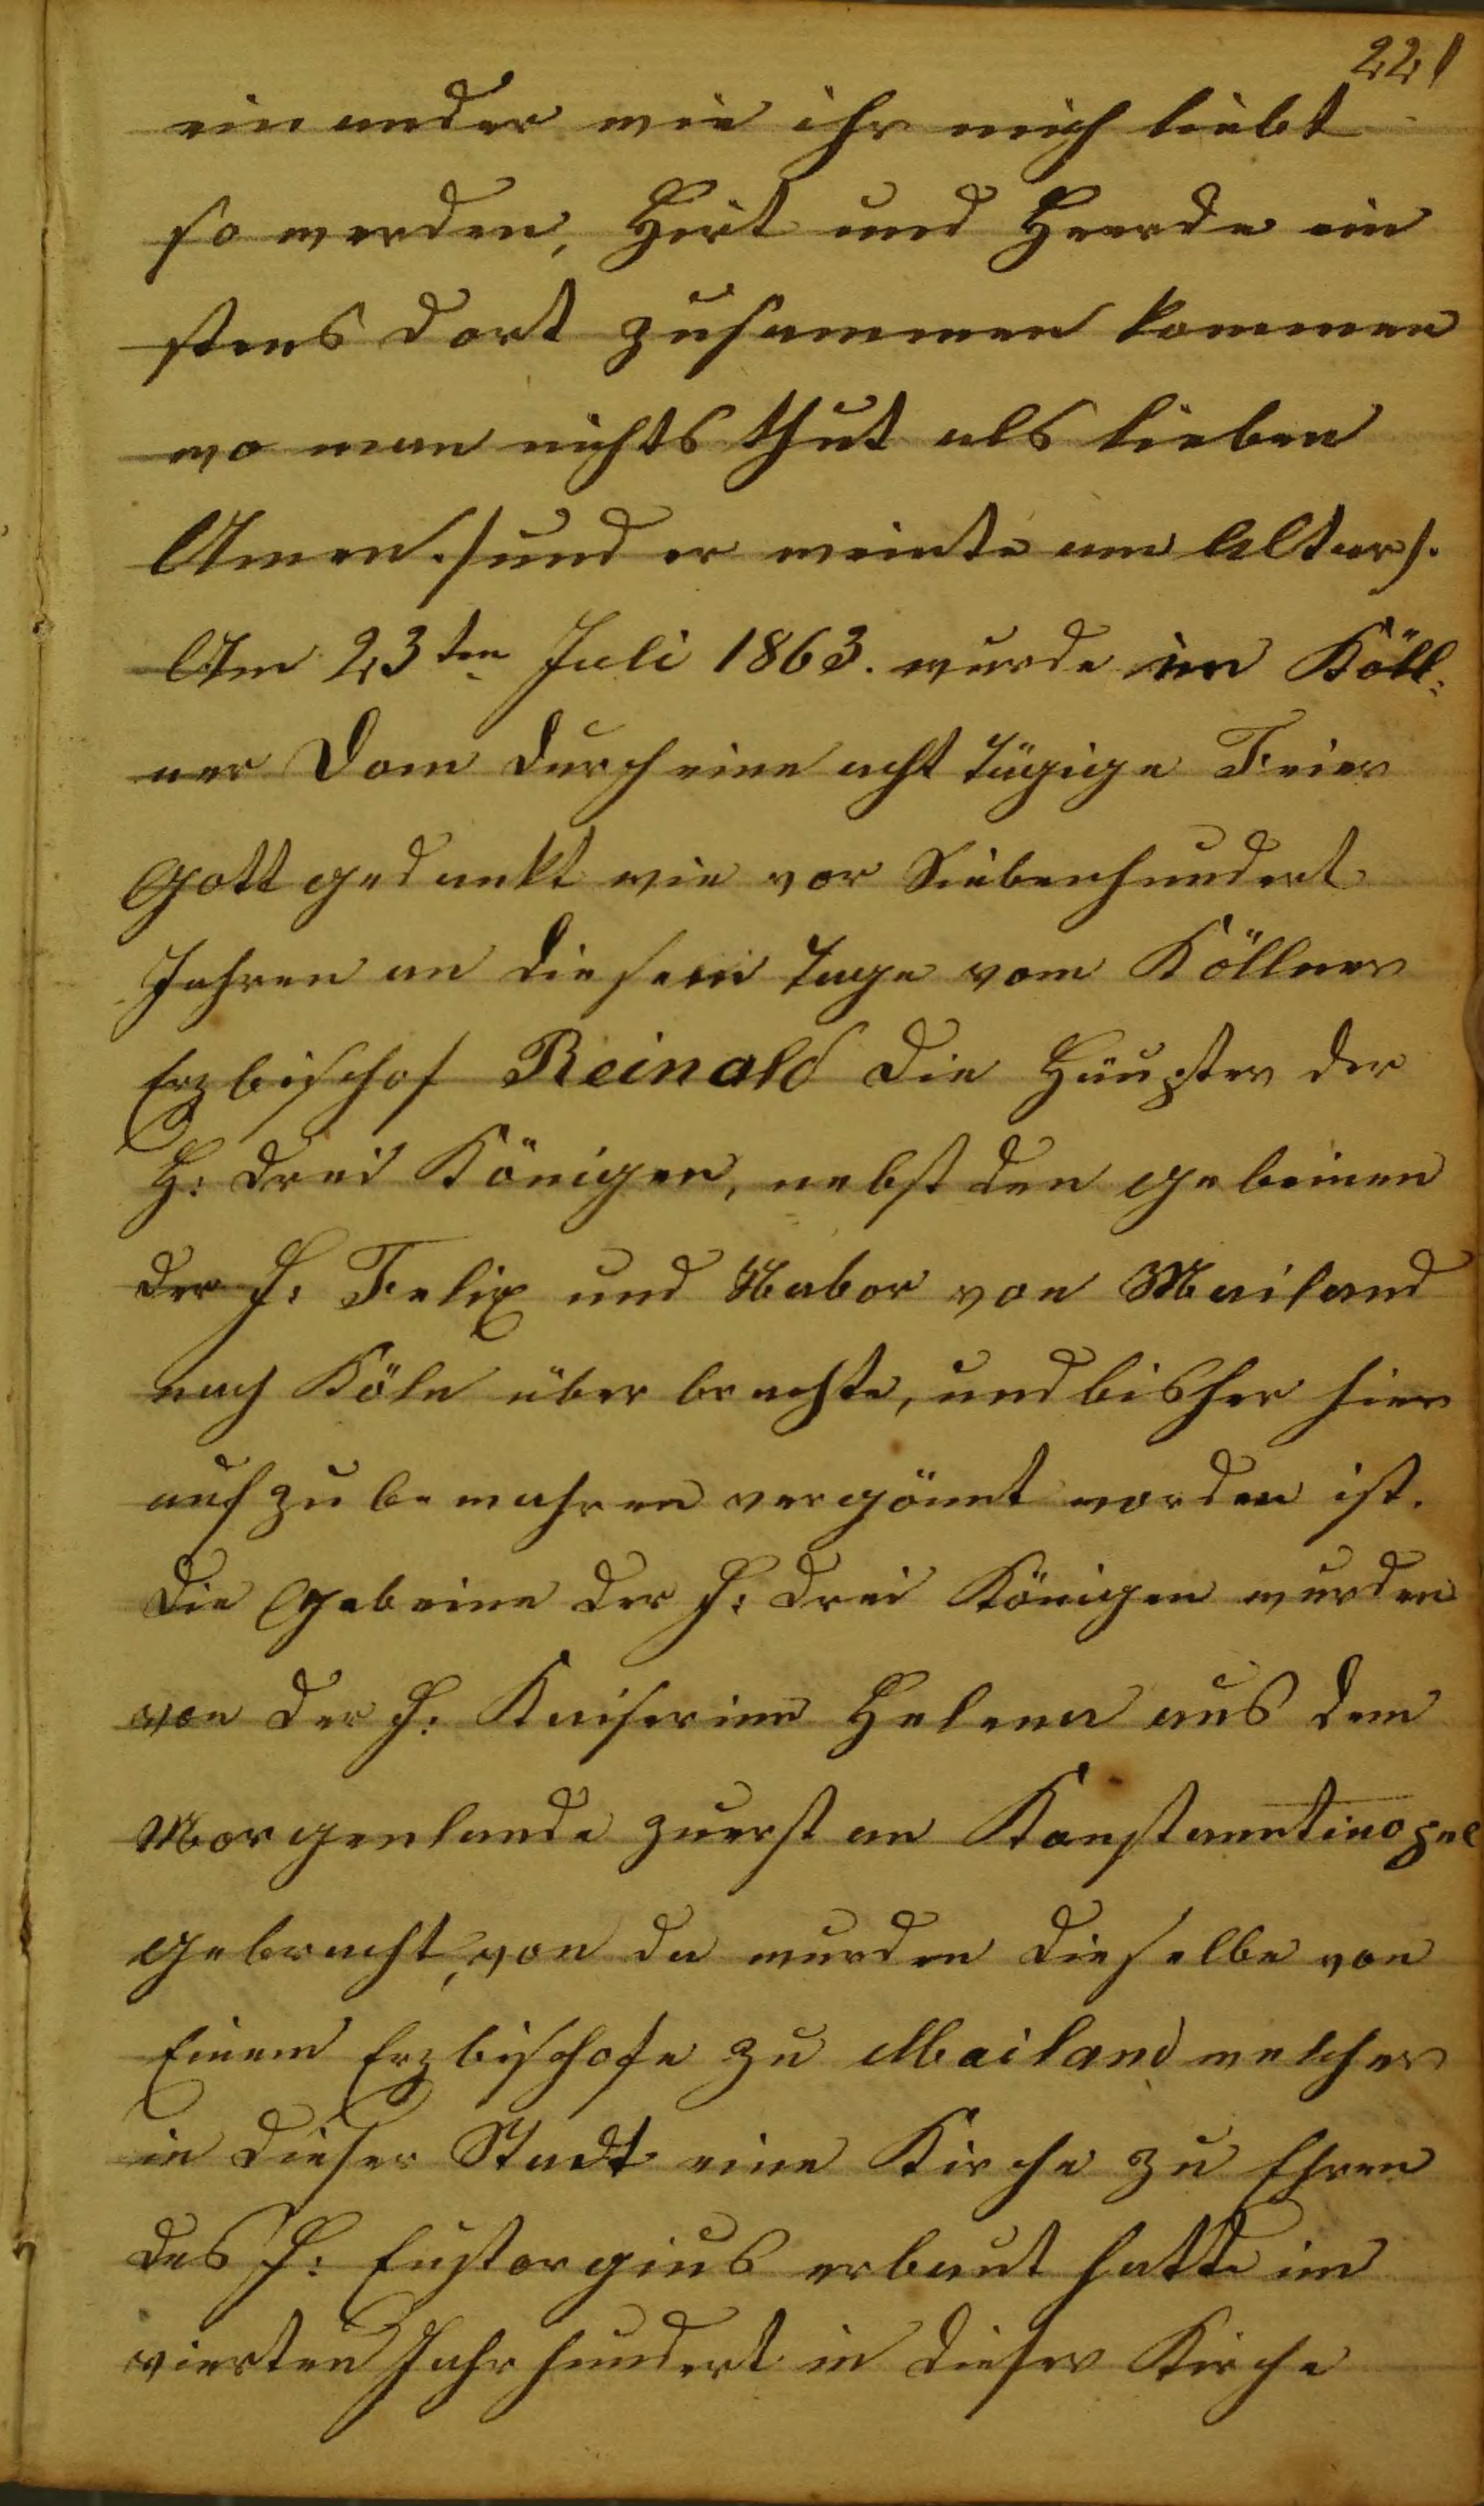 221
ein ander wie ihr mich liebt
so werden, Hirt und Heerde ein
stens dort zusammen kommen
wo man nichts thut als lieben
Amen. /und er weinte am Altar/.
Am 23ten Juli 1863. wurde im Köll:
ner Dom durch eine acht tägige Feier
Gott gedankt wie vor Siebenhundert
Jahren an diesem Tage vom Köllner
Erzbischof Reinald die Häupter der
H: drei Königen, nebst den gebeinen
der H: Felix und Nabor von Mailand
nach Köln über brachte, und bisher hier
auf zu bewahren vergönnt worden ist.
Die Gebeine der H: drei Königen wurden
von der H: Kaiserinn Helena aus dem
Morgenlande zuerst an Konstanntinopel
gebracht, von da wurden dieselbe von
Einem Erzbischofe zu Mailand welcher
in dieser Stadt eine Kirche zu Ehren
des H: Eustorgius erbaut hatte im
vierten Jahrhundert in dieser Kirche